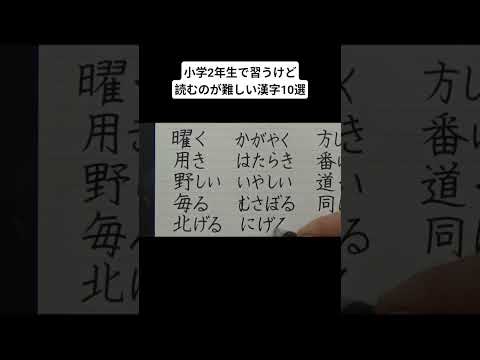 小学2年生で習うけど
読むのが難しい漢字10選
曜く かがやく 方し
用き はたらき 番
野しい いやしい 道
毎る むさぼる 同
北げる にげる